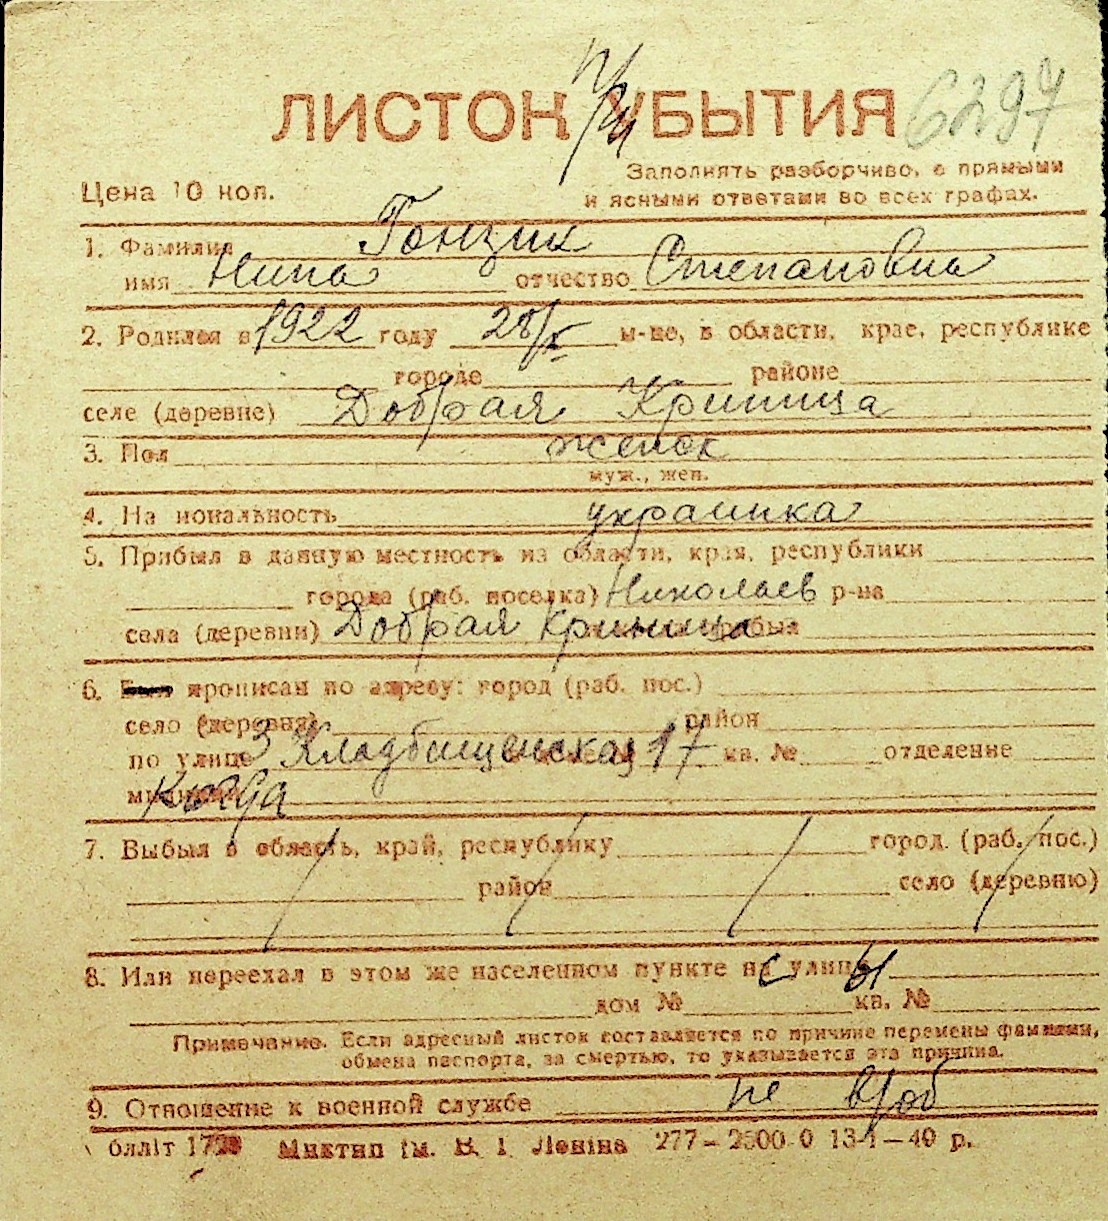 ЛИСТОК УБЫТИЯ 6297
Заполнять разборчиво, с прямыми
Цена 10 коп.
и ясными ответами во всех графах.
1. Фамилия Гонзик
имя Нина отчество Степановна
2. Родился в 1922 году 28/X м-це, в области, крае, республике
городе районе
селе (деревне) Добрая Криница
3. Пол женск
муж., жен.
4. Национальность украинка
5. Прибыл в данную местность из области, края, республики
города (раб. поселка) Николаев р-на
села (деревни) Добрая Криница
6. Был прописан по адресу: город (раб. пос.)
село (деревня) район
по улице 3 Кладбищенская 17 кв. № отделение
милиции когда
7. Выбыл в область, край, республику город (раб. пос.)
район село (деревню)
8. Или переехал в этом же населенном пункте на улицы
дом № кв. №
Примечание. Если адресный листок составляется по причине перемены фамилии,
обмена паспорта, за смертью, то указывается эта причина.
9. Отношение к военной службе не в/об
ім. В. І. Леніна 277—2500 0 13-1—40 р.